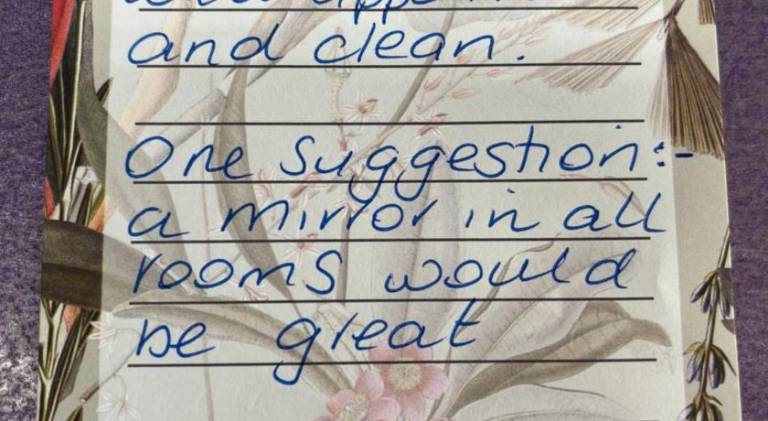 and clean.
One suggestion:-
a mirror in all
rooms would
be great